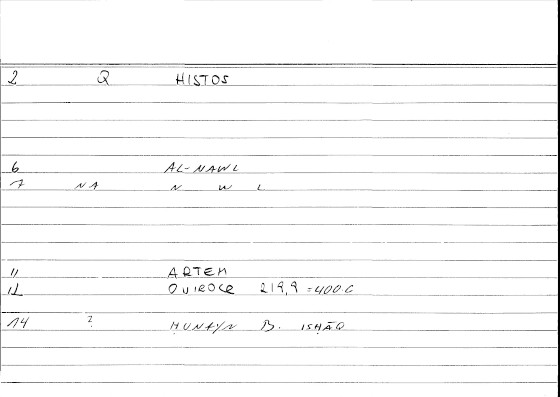 2 Q HISTOS
6 AL-NAWL
7 NA N W L
11 ARTEM
12 219,9 = 400.C
14 ? ḤUNAYN B. ISḤĀQ